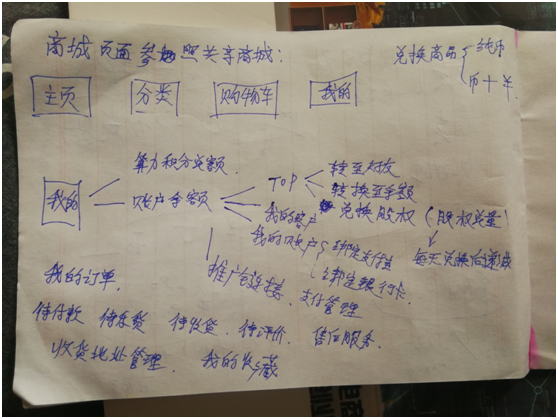 商城页面参照共享商城:
兑换商品 纯币
币+羊
主页 分类 购物车 我的
算力积分总额
我的 账户余额 TOP 转至好友
转换至余额
兑换股权(股权总量)
每天兑换后递减
我的账户
我的账户 绑定支付宝
绑定银行卡
推广链接 支付管理
我的订单
待付款 待发货 待收货 待评价 售后服务
收货地址管理 我的收藏